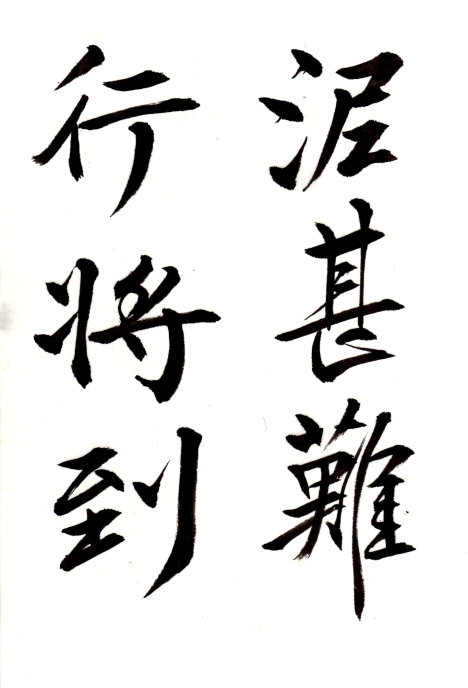 泥甚難
行將到